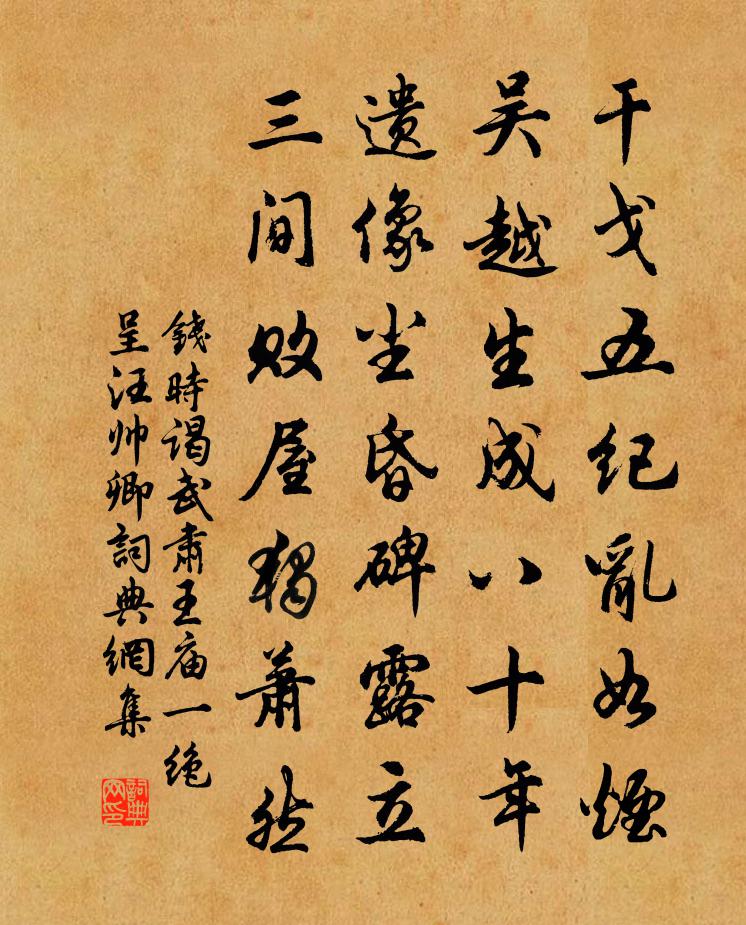 干戈五纪亂如煙
吴越生成八十年
遗像尘昏碑露立
三间败屋独萧然
錢時谒武肅王庙一绝
呈汪帅卿詞典網集
詞典网印